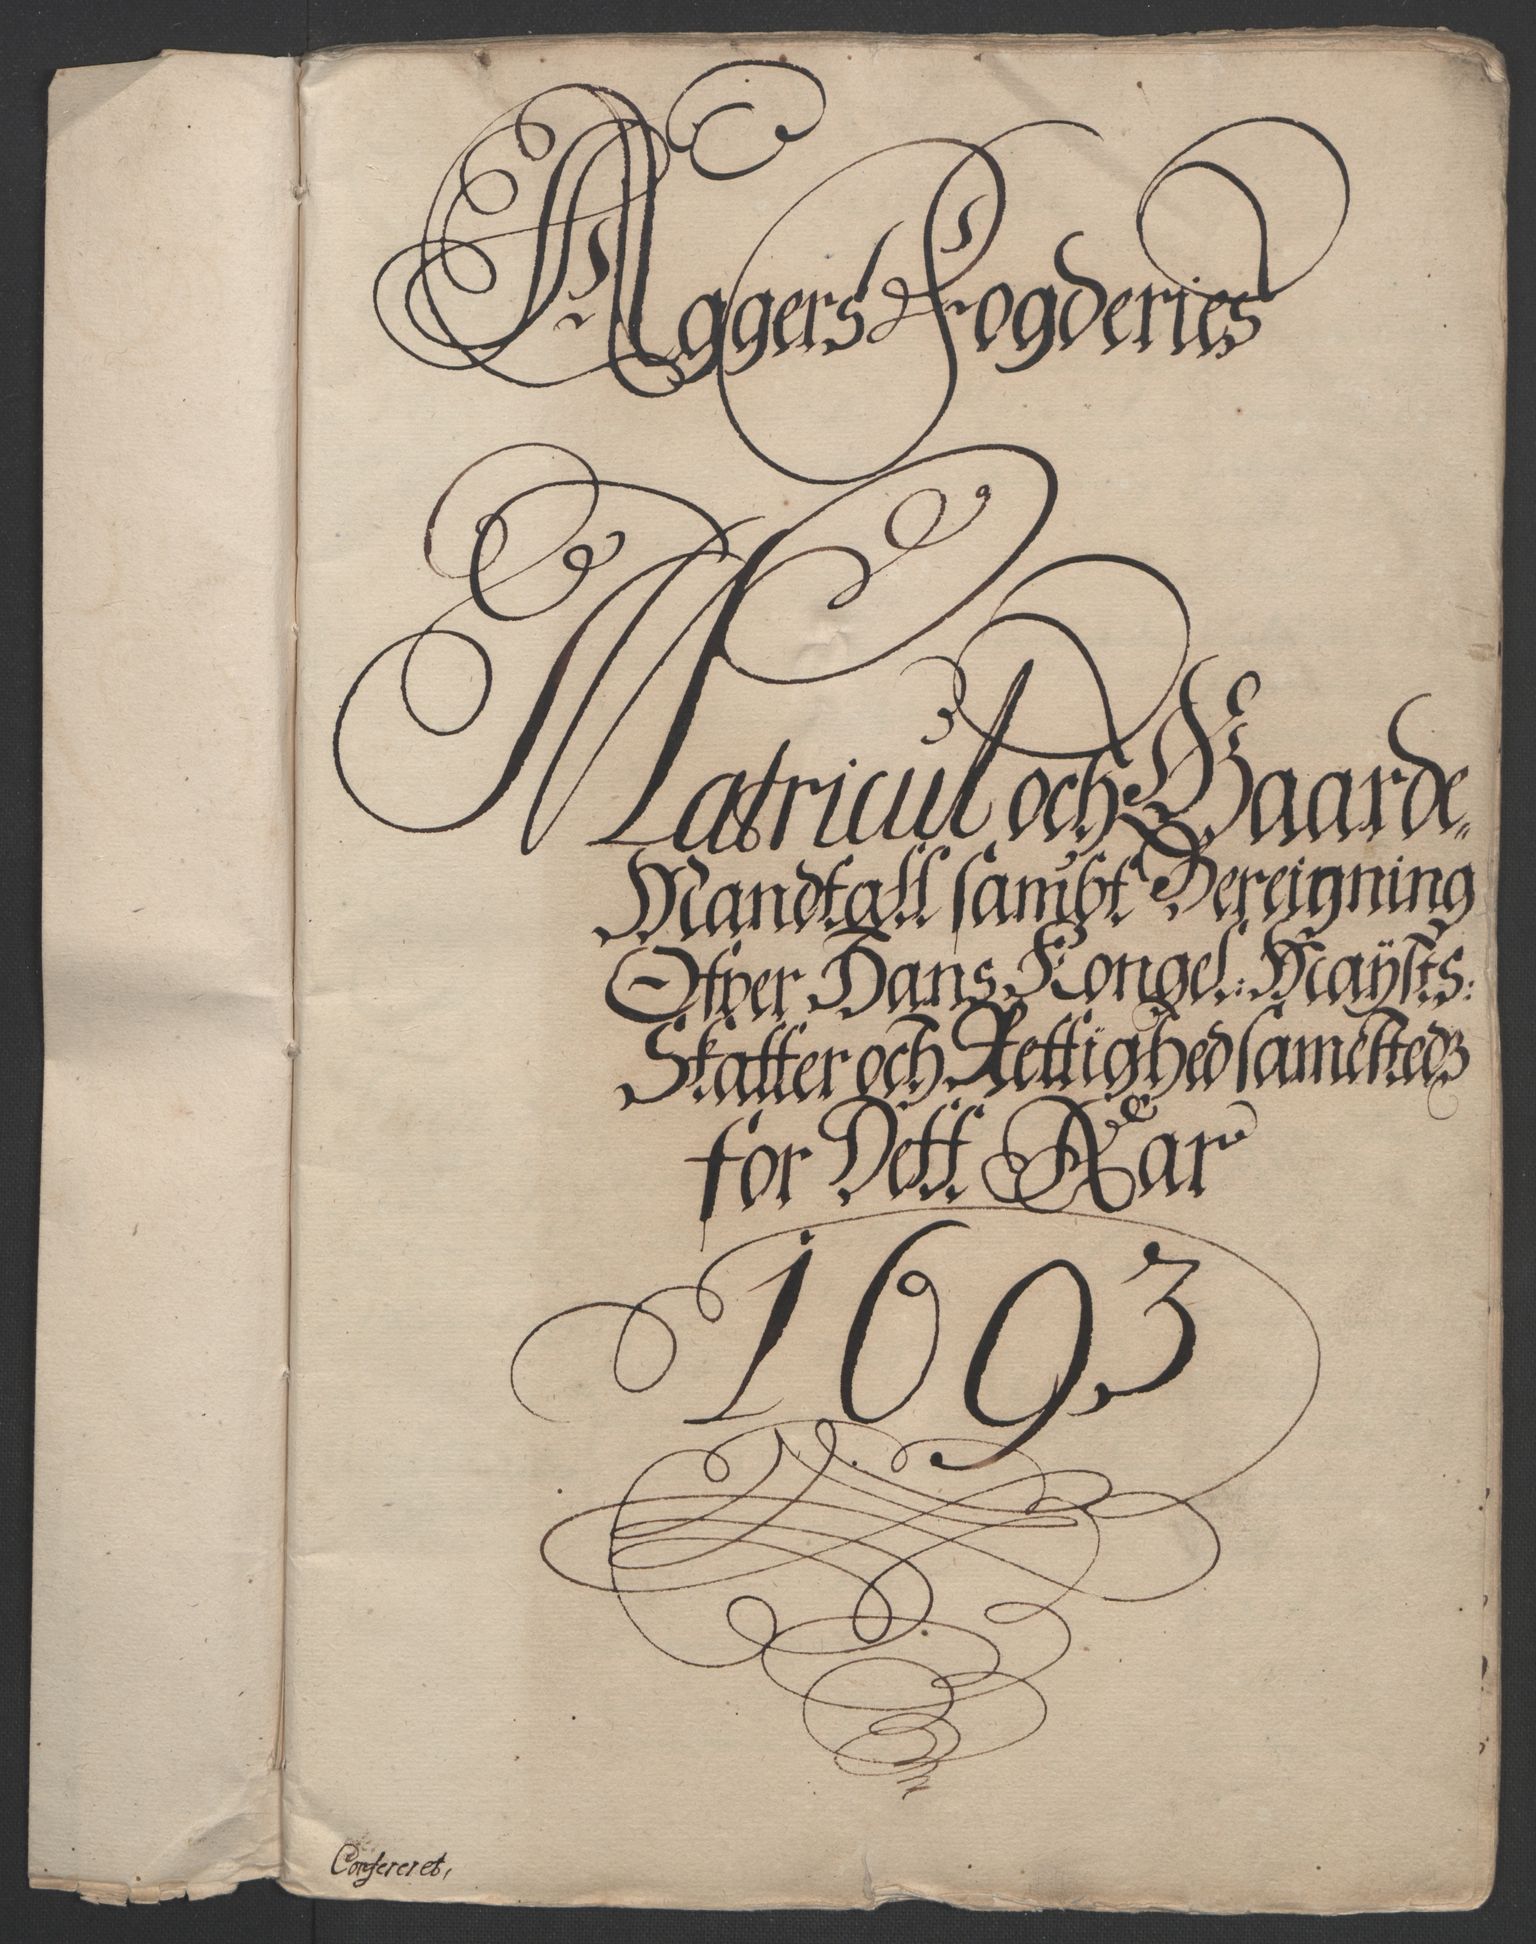 Aggers Fogderies
Matricul och Gaarde„
Mandtall sambt Bereigning
Ofver Hans Kongel: Mayſts:
Skatter och Rettighed samestedz
for Dett Aar
1693
Confereret,